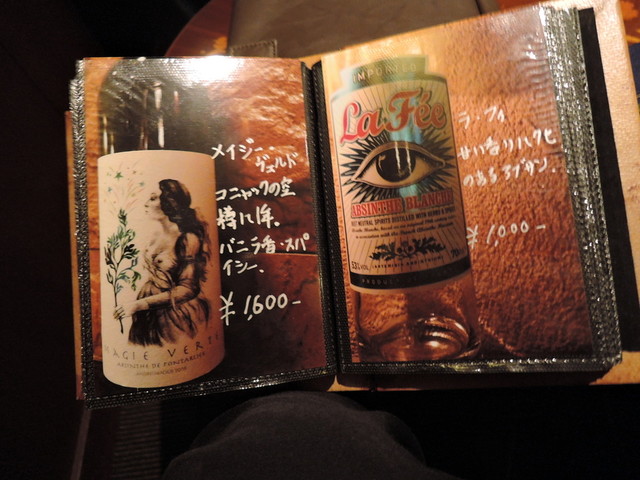 メイジー.
ヴェルド
コニャックの空
樽に1年。
バニラ香・スパ
イシー、
¥1,600-
MAGIE VERTE
ABSINTHE DE PONTARLIER
IMPORTED
La Fée
ABSINTHE BLANCHE
53% VOL
ラ・フィ
甘い香りハクヒ
のあるアブサン.
¥1,000-